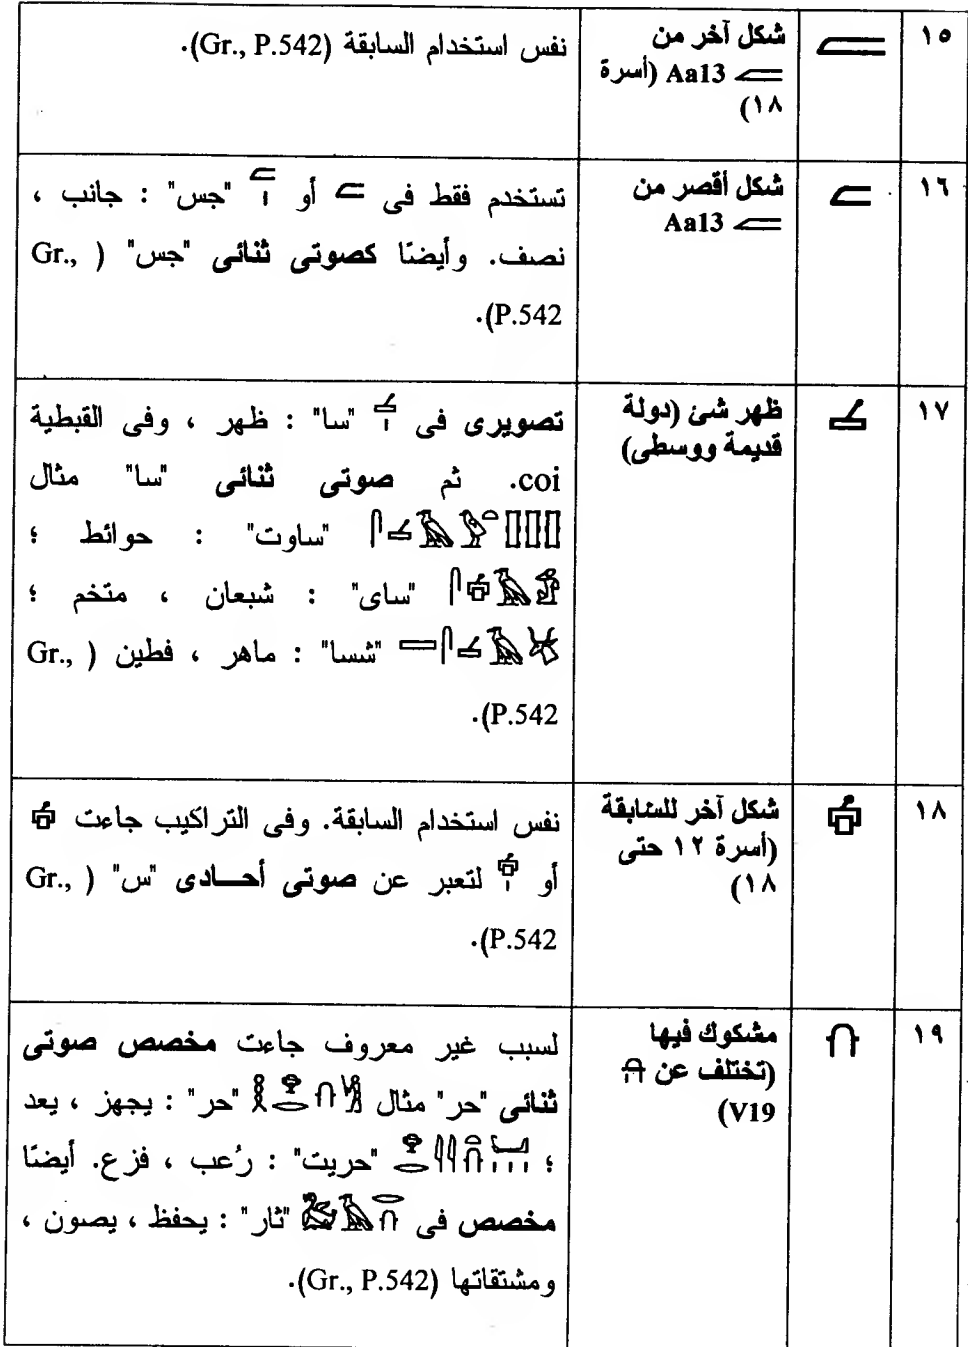 ١٥
شكل آخر من
𓐞 Aa13 (أسرة
١٨)
نفس استخدام السابقة (Gr., P.542).
١٦
شكل أقصر من
Aa13
تستخدم فقط فى أو "جس" : جانب ،
نصف. وأيضًا كصوتى ثنائى "جس" ( Gr.,
P.542).
١٧
ظهر شئ (دولة
قديمة ووسطى)
تصويرى فى "سا" : ظهر ، وفى القبطية
coi. ثم صوتى ثنائى "سا" مثال
"ساوت" : حوائط ؛
"ساى" : شبعان ، متخم ؛
"شسا" : ماهر ، فطين ( Gr.,
P.542).
١٨
شكل آخر للسابقة
(أسرة ١٢ حتى
١٨)
نفس استخدام السابقة. وفى التراكيب جاءت
أو لتعبر عن صوتى أحادى "س" ( Gr.,
P.542).
١٩
مشكوك فيها
(تختلف عن
V19)
لسبب غير معروف جاءت مخصص صوتى
ثنائى "حر" مثال "حر" : يجهز ، يعد
؛ "حريت" : رُعب ، فزع. أيضًا
مخصص فى "ثار" : يحفظ ، يصون ،
ومشتقاتها (Gr., P.542).